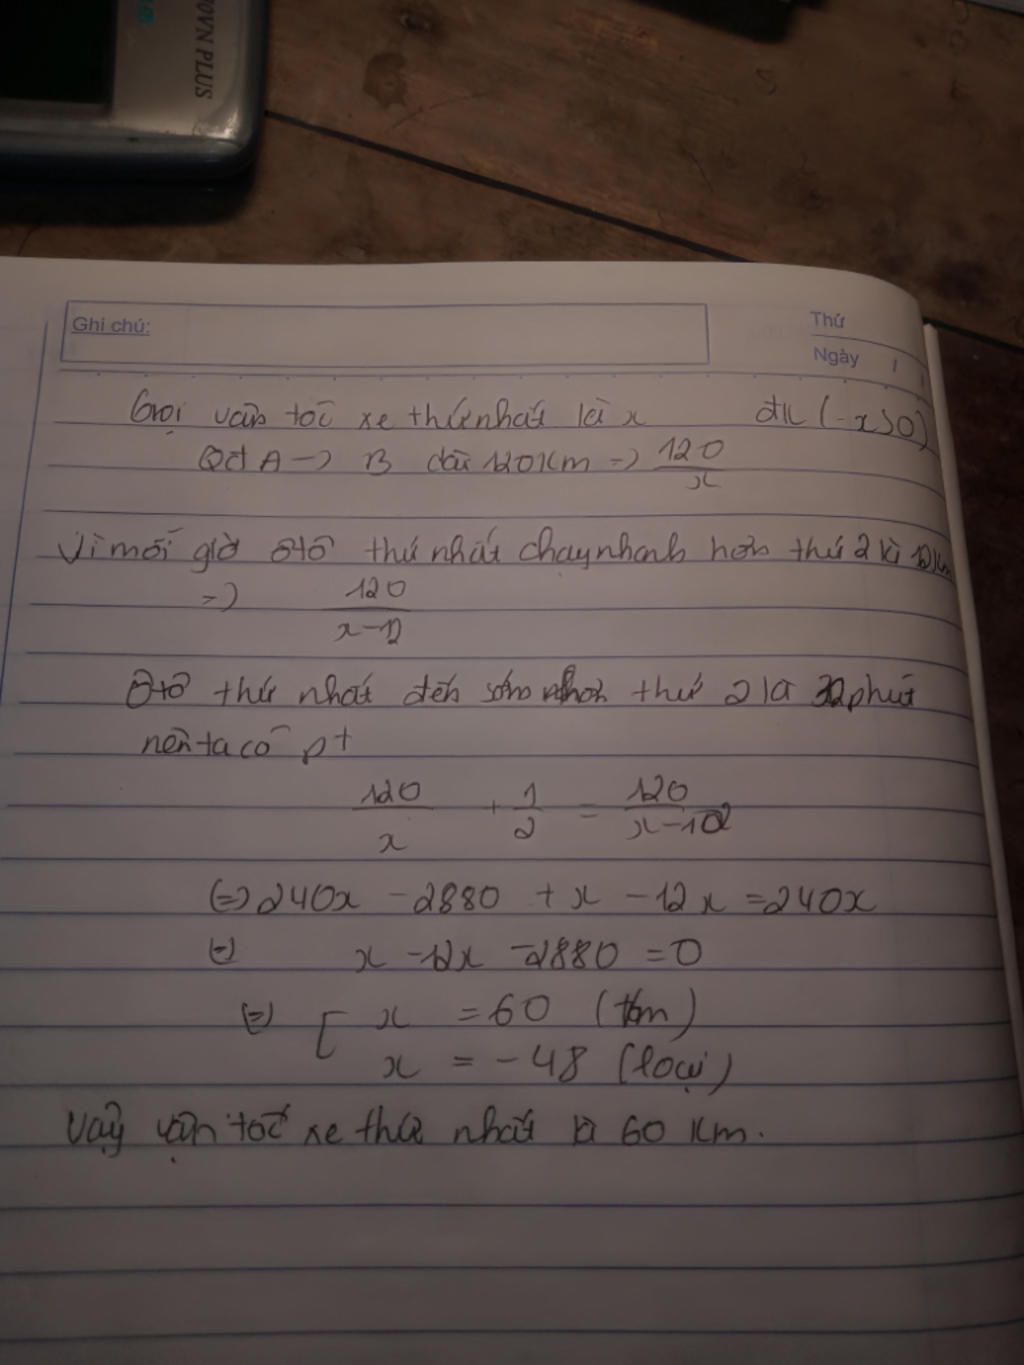 OVN PLUS
Ghi chú:
Thứ
Ngày
Gọi vận tốc xe thứ nhất là x đk (-x>0)
Qđ A -> B dài 120 Km => 120/x
Vì mỗi giờ ôtô thứ nhất chạy nhanh hơn thứ 2 là 12 Km
=> 120/x-12
Ôtô thứ nhất đến sớm hơn thứ 2 là phút
nên ta có pt
120/x + 1/2 = 120/x-12
(=) 240x - 2880 + x - 12x = 240x
(=) x - 12x - 2880 = 0
(=) [ x = 60 (tm)
x = -48 (loại)
Vậy vận tốc xe thứ nhất là 60 Km.